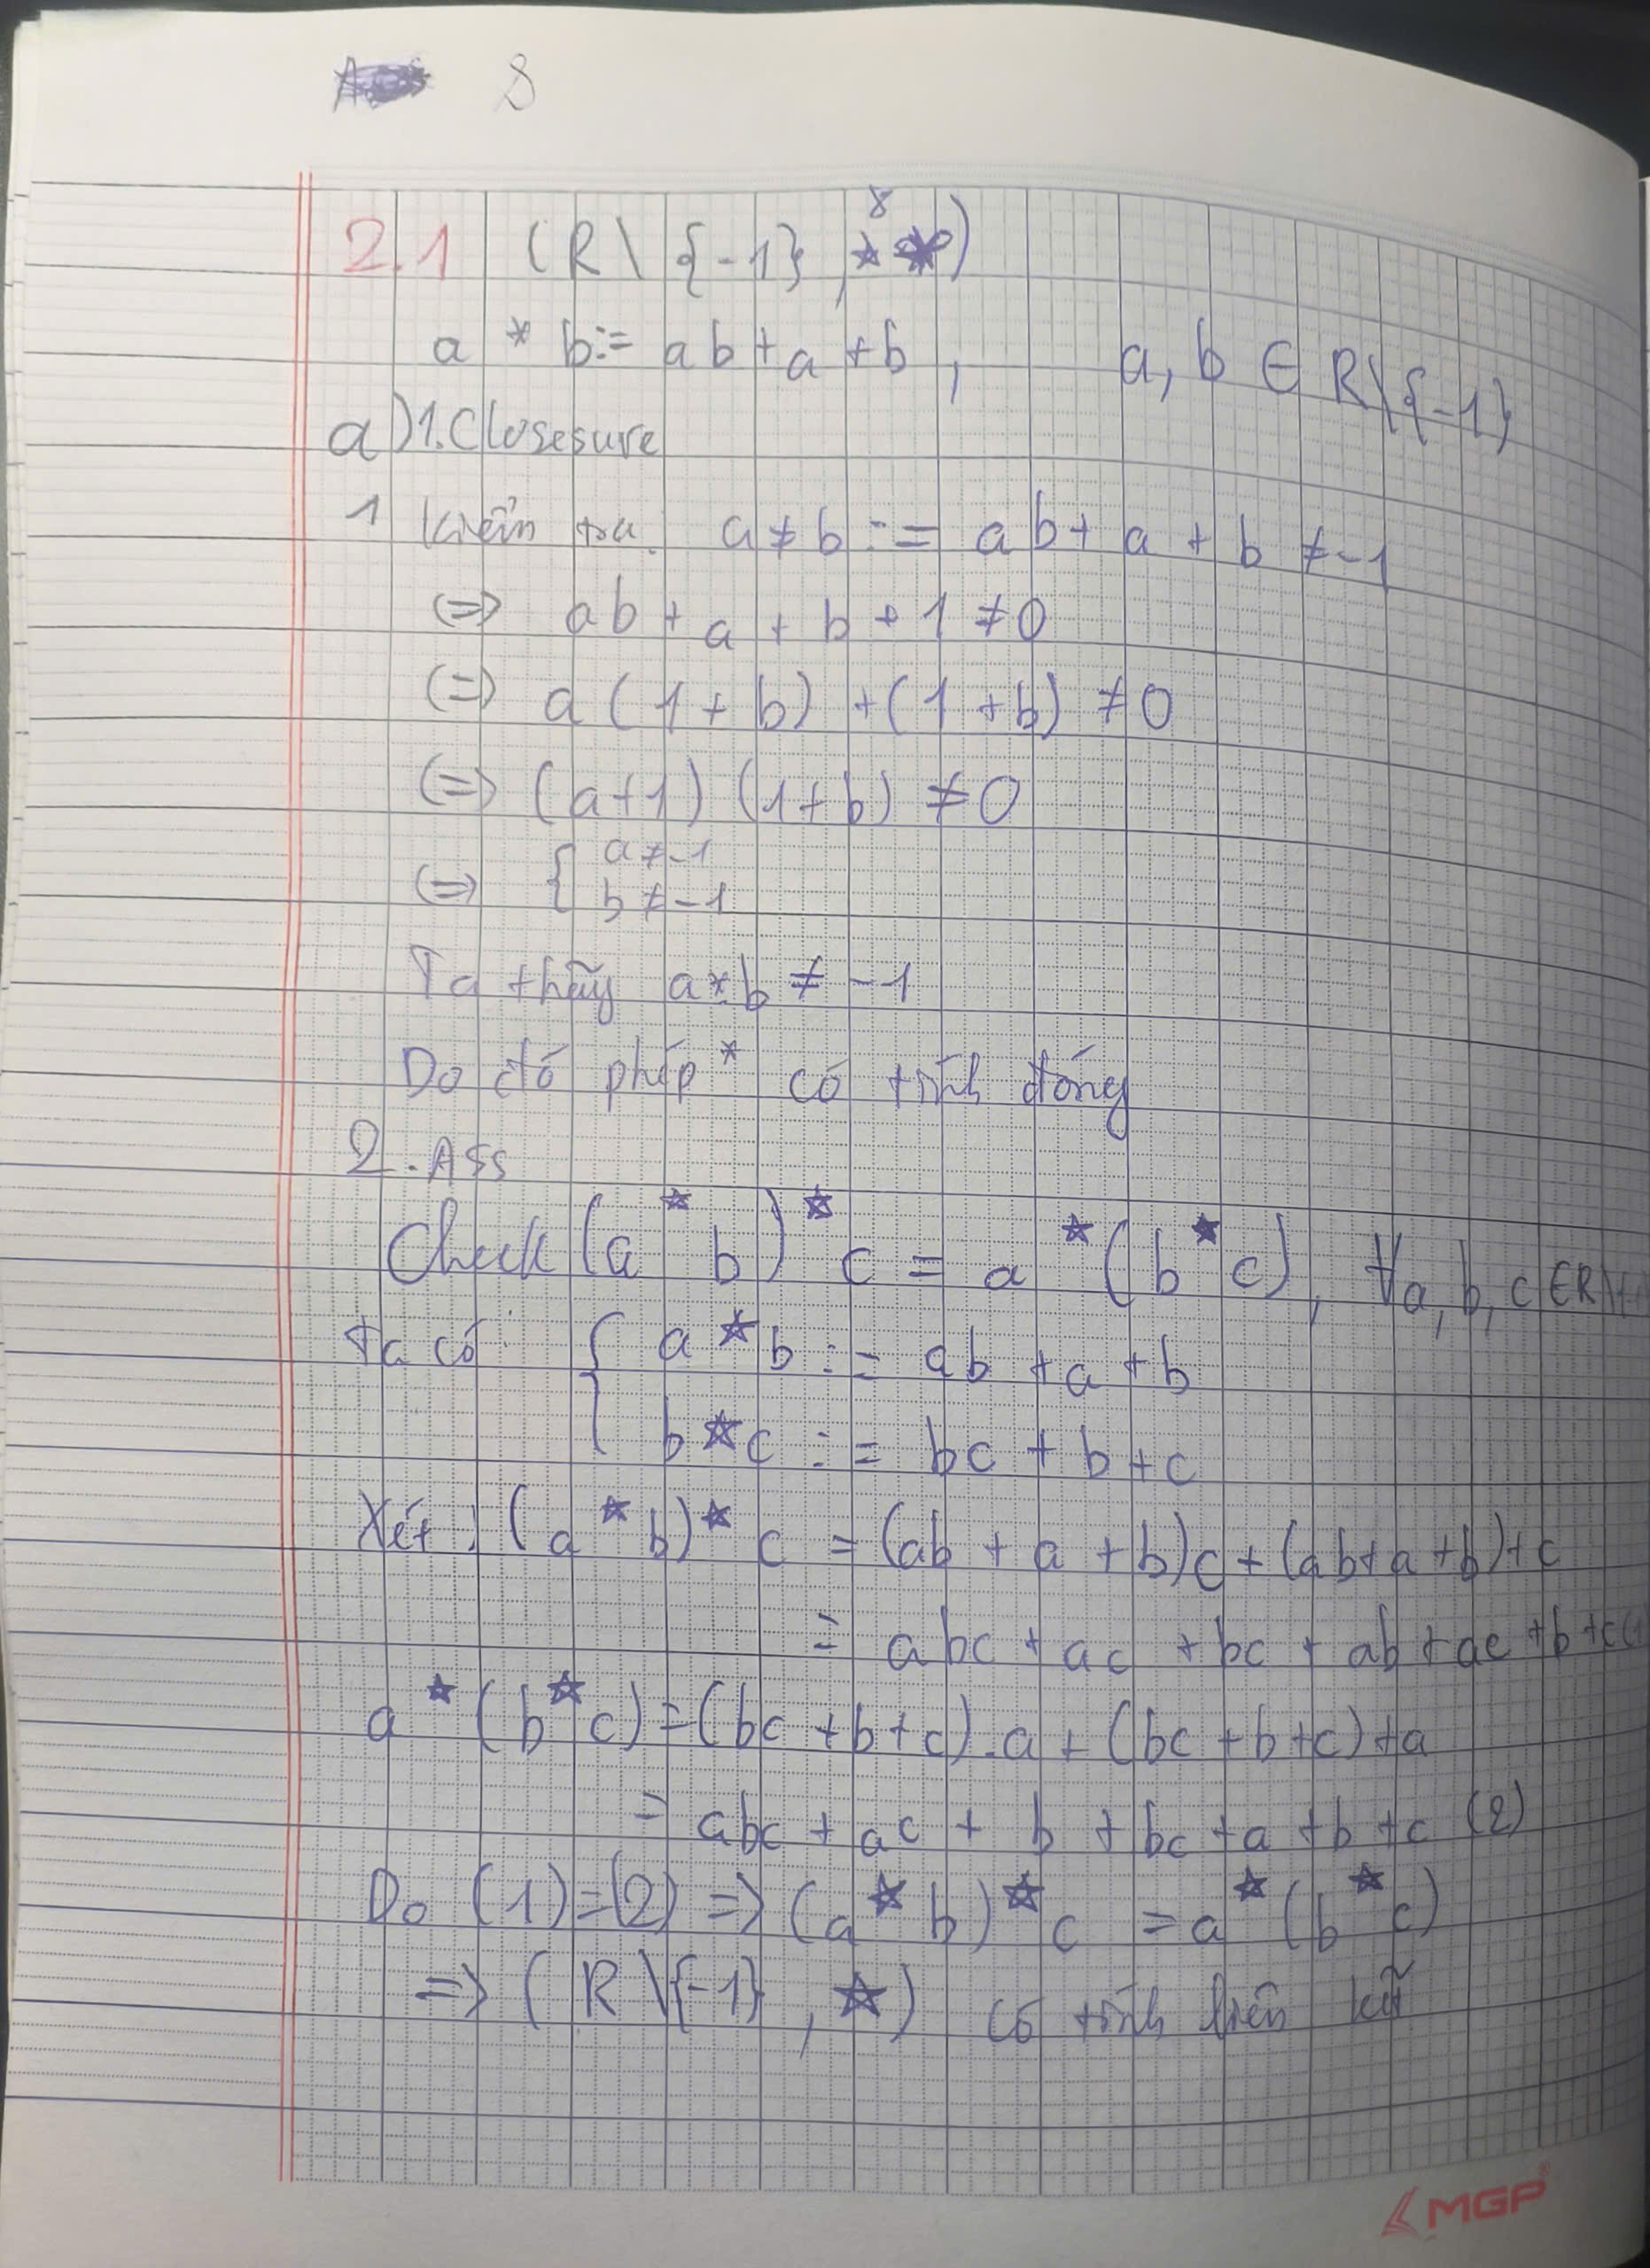 8
2.1 (R \ {-1}, ⋆)
a * b := ab + a + b, a, b ∈ R\{-1}
a) 1. Closesure
1 Kiểm tra: a * b := ab + a + b ≠ -1
(=> ab + a + b + 1 ≠ 0
(=) a (1 + b) + (1 + b) ≠ 0
(=> (a+1) (1+b) ≠ 0
(=> { a ≠ -1
b ≠ -1
Ta thấy a * b ≠ -1
Do đó phép * có tính đóng
2. Ass
Check (a ⋆ b) ⋆ c = a ⋆ (b ⋆ c), ∀a, b, c ∈ R\
Ta có: { a ⋆ b := ab + a + b
b ⋆ c := bc + b + c
Xét: (a ⋆ b) ⋆ c = (ab + a + b)c + (ab + a + b) + c
= abc + ac + bc + ab + ac + b + c
a ⋆ (b ⋆ c) = (bc + b + c).a + (bc + b + c) + a
= abc + ac + b + bc + a + b + c (2)
Do (1) = (2) => (a ⋆ b) ⋆ c = a ⋆ (b ⋆ c)
=> (R \{-1}, ⋆) có tính liên kết
MGP